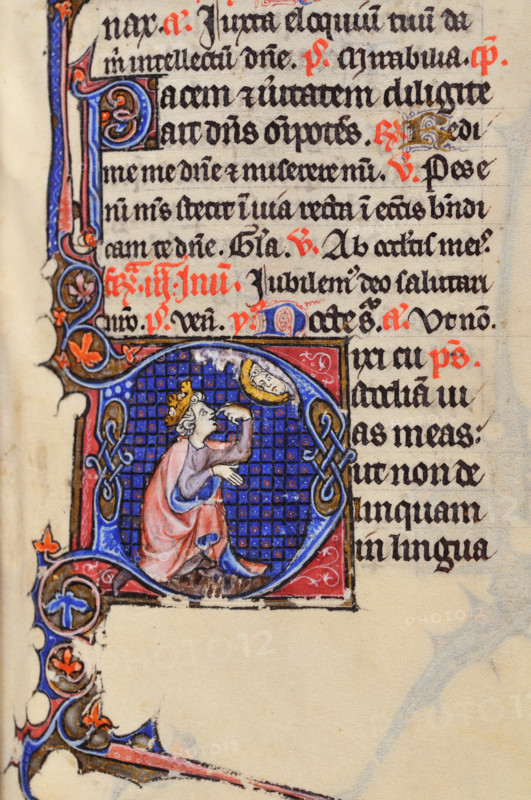 nax. a. Iuxta eloquiũ tuũ da
m̃ intellectũ dñe. p̃. Mirabilia. cp̃.
Pacem ⁊ ũitatem diligite
ait dñs oĩpotẽs. Redi
me me dñe ⁊ miserere mĩ. v̄. Pes e
nĩ mẽs stetit ĩ uia recta ĩ eccĩs bñdi
cam te dñe. Glã. v̄. Ab occltis meis
Iubilemꝰ deo salutari
nr̃o. p̃. Veñ. y. Noctẽ sã. a. Vt nõ.
Dixi cũ p̃s.
stodiã ui
as meas:
ut non de
linquam
in lingua
PHOTO12